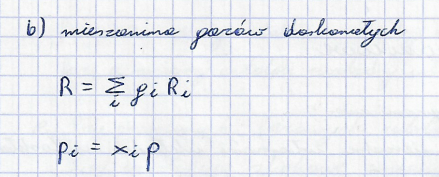 b) mieszanina gazów doskonałych
R = Σ_i g_i R_i
p_i = x_i p